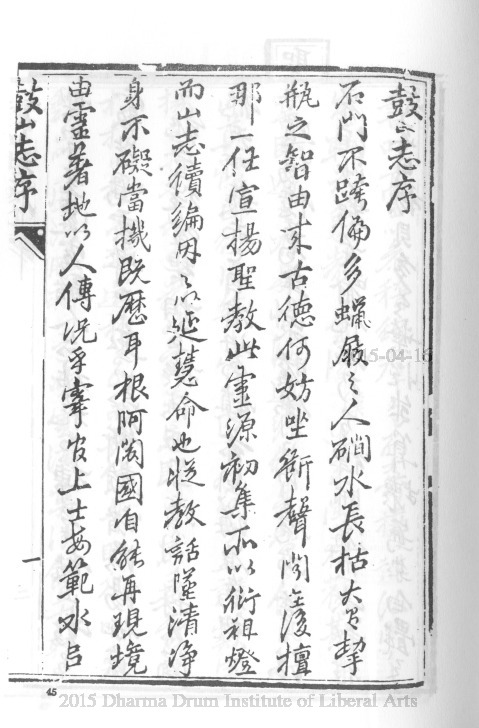 鼓山志序
石門不跨偏多蠟屐之人磵水長枯大有挈
瓶之智由来古德何妨坐斷聲聞後檀
那一任宣揚聖教此靈源初集所以衍祖燈
而山志續編用以延慧命也從教話墮清淨
身不礙當機既歷耳根阿閦國自能再現境
由靈著地以人傳況乎宰官上士安範水呂
鼓山志序
一
45
2015-04-16
2015 Dharma Drum Institute of Liberal Arts